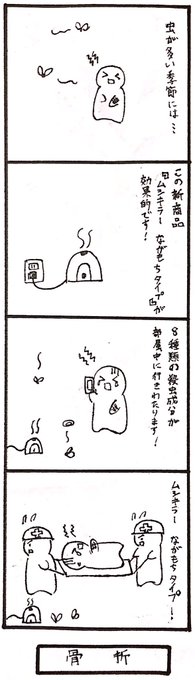 虫が多い季節には…
この新商品
『ムシキラー ながもちタイプ』が
効果的です!
8種類の殺虫成分が
部屋中に行きわたります!
ムシキラー ながもちタイプー!
骨折